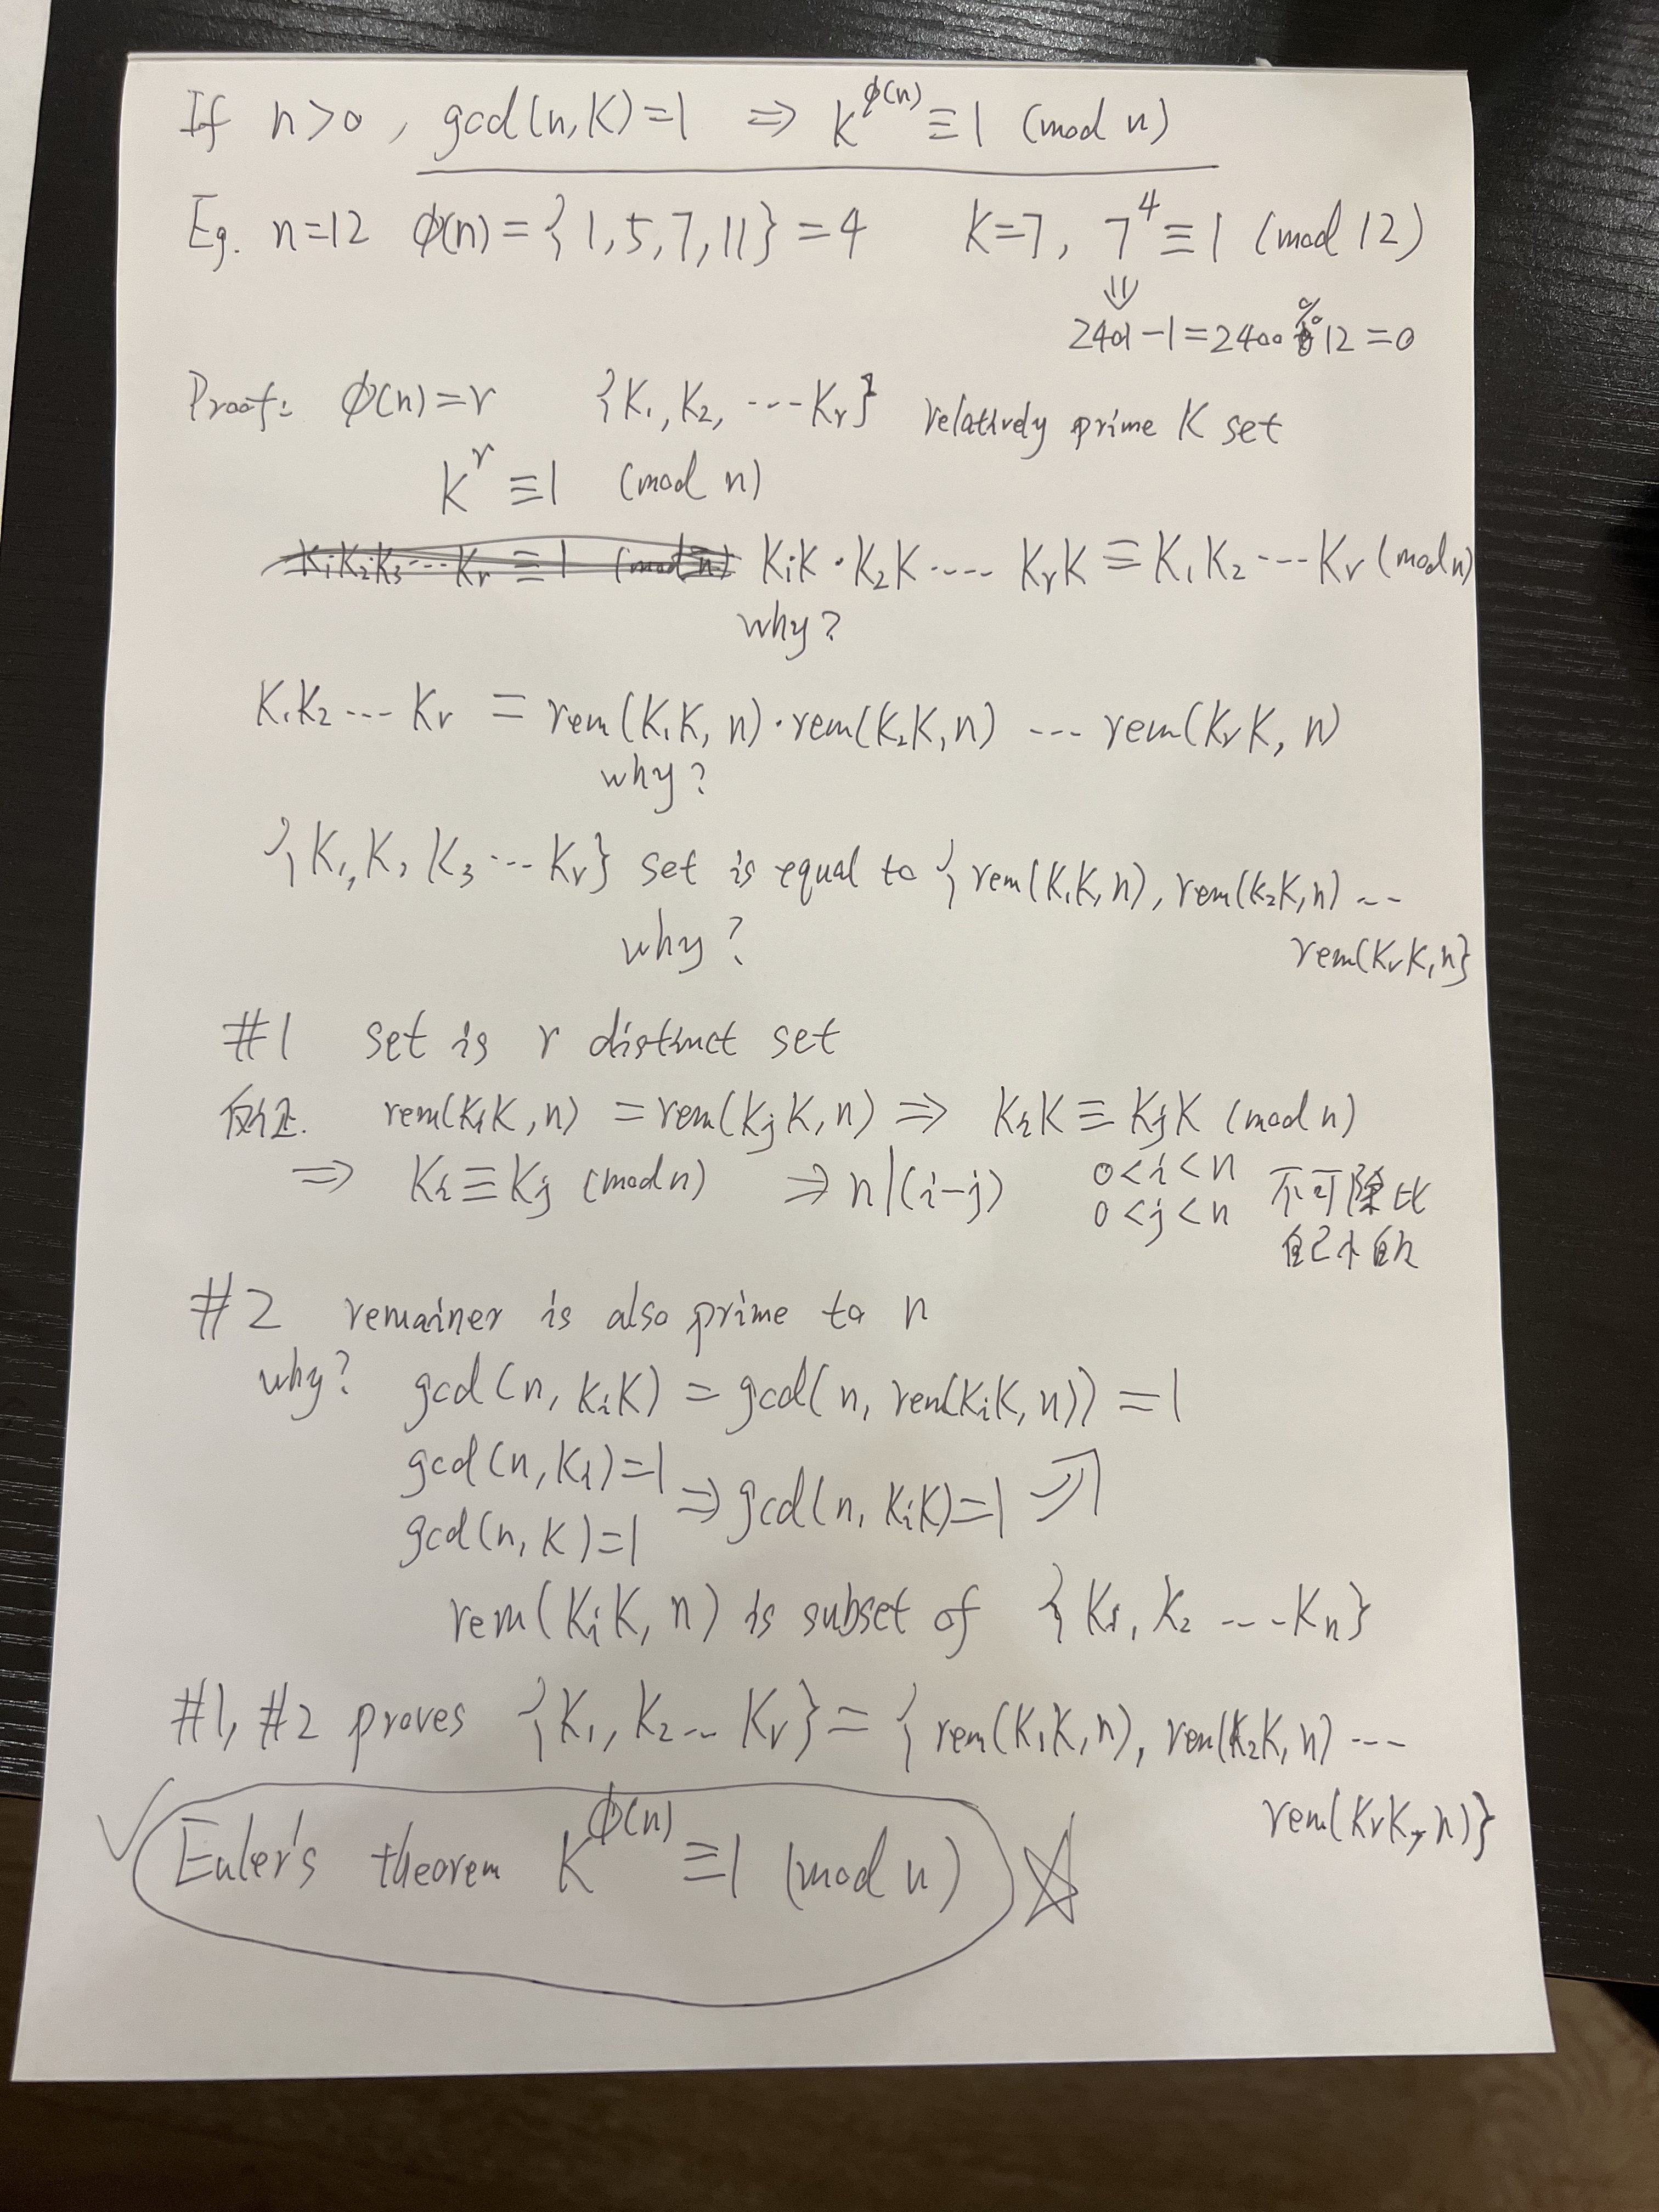 If n>0, gcd(n,K)=1 ⇒ K^ϕ(n) ≡1 (mod n)
Eg. n=12 ϕ(n)={1,5,7,11}=4 K=7, 7^4≡1 (mod 12)
⇓
2401-1=2400 % 12=0
Proof: ϕ(n)=r {K1, K2, ...Kr} relatively prime K set
K^r ≡1 (mod n)
K1K2K3...Kr ≡ 1 (mod n) K1K·K2K.... KrK ≡ K1K2...Kr (mod n)
why?
K1K2...Kr = rem(K1K, n)·rem(K2K,n) ... rem(KrK, n)
why?
{K1,K2 K3...Kr} set is equal to {rem(K1K,n), rem(K2K,n)...
rem(KrK,n}
why?
#1 set is r distinct set
反证. rem(KiK,n) = rem(KjK,n) ⇒ KiK≡KjK (mod n)
⇒ Ki≡Kj (mod n) ⇒ n|(i-j) 0<i<n 不可除比
0<j<n 自己小的
#2 remainer is also prime to n
why? gcd(n, KiK) = gcd(n, rem(KiK,n)) = 1
gcd(n,Ki)=1
⇒ gcd(n, KiK)=1 ⇗
gcd(n,K)=1
rem(KiK,n) is subset of {K1, K2 ...Kn}
#1, #2 proves {K1, K2... Kr} = {rem(K1K,n), rem(K2K,n)...
rem(KrK,n)}
✓ Euler's theorem K^ϕ(n) ≡1 (mod n) ☆